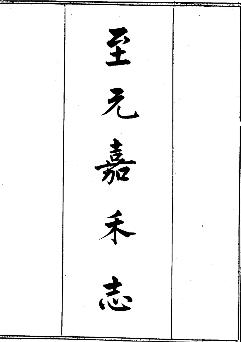 至元嘉禾志